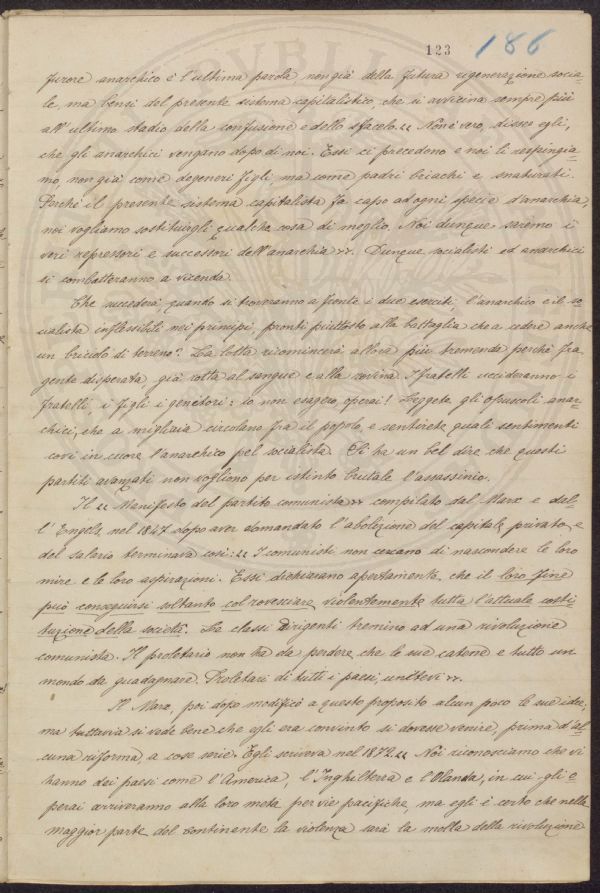 123 186
furore anarchico è l'ultima parola non già della futura rigenerazione socia-
le, ma bensì del presente sistema capitalistico, che si avvicina sempre più
all'ultimo stadio della confusione e dello sfacelo. « Non è vero, disse egli,
che gli anarchici vengano dopo di noi. Essi ci precedono e noi li respingia-
mo, non già come degeneri figli, ma come padri briachi e snaturati.
Perchè il presente sistema capitalista fa capo ad ogni specie d'anarchia,
noi vogliamo sostituirgli qualche cosa di meglio. Noi dunque saremo i
veri repressori e successori dell'anarchia ». Dunque socialisti ed anarchici
si combatteranno a vicenda.
Che succederà quando si troveranno a fronte i due eserciti, l'anarchico e il so-
cialista inflessibili nei principi, pronti piuttosto alla battaglia che a cedere anche
un briciolo di terreno? La lotta ricomincerà allora più tremenda perchè fra
gente disperata, già rotta al sangue e alla rovina. I fratelli uccideranno i
fratelli, i figli i genitori: io non esagero, operai! Leggete gli opuscoli anar-
chici, che a migliaia circolano fra il popolo, e sentirete quali sentimenti
covi in cuore l'anarchico pel socialista. Si ha un bel dire che questi
partiti avanzati non vogliono per istinto brutale l'assassinio.
Il « Manifesto del partito comunista » compilato dal Marx e dal-
l'Engels nel 1847 dopo aver domandato l'abolizione del capitale privato, e
del salario terminava così: « I comunisti non cercano di nascondere le loro
mire e le loro aspirazioni. Essi dichiarano apertamente che il loro fine
può conseguirsi soltanto col rovesciare violentemente tutta l'attuale costi-
tuzione della società. Le classi dirigenti tremino ad una rivoluzione
comunista. Il proletario non ha da perdere che le sue catene e tutto un
mondo da guadagnare. Proletari di tutti i paesi, unitevi ».
Il Marx, poi dopo modificò a questo proposito alcun poco le sue idee,
ma tuttavia si vede bene che egli era convinto si dovesse venire, prima d'al-
cuna riforma, a cose serie. Egli scriveva nel 1872 « Noi riconosciamo che vi
hanno dei paesi come l'America, l'Inghilterra e l'Olanda, in cui gli o-
perai arriveranno alla loro meta per vie pacifiche, ma egli è certo che nella
maggior parte del continente la violenza sarà la molla della rivoluzione